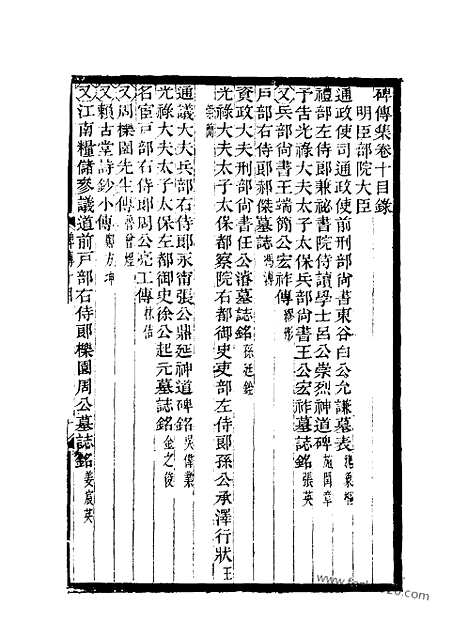 碑傳集卷十目錄
明臣部院大臣
通政使司通政使前刑部尙書東谷白公允謙墓表 魏象樞
禮部左侍郞兼祕書院侍讀學士呂公崇烈神道碑 施閏章
予吿光祿大夫太子太保兵部尙書王公宏祚墓誌銘 張英
又兵部尙書王端簡公宏祚傳 繆彤
戶部右侍郞郝傑墓誌 馮溥
資政大夫刑部尙書任公濬墓誌銘 孫廷銓
光祿大夫太子太保都察院右都御史吏部左侍郞孫公承澤行狀 王
崇簡
通議大夫兵部右侍郞永甯張公鼎延神道碑銘 吳偉業
光祿大夫太子太保左都御史徐公起元墓誌銘 金之俊
名宦戶部右侍郞周公亮工傳 林佶
又周櫟園先生傳 魯曾煜
又賴古堂詩鈔小傳 鄭方坤
又江南糧儲參議道前戶部右侍郞櫟園周公墓誌銘 姜宸英